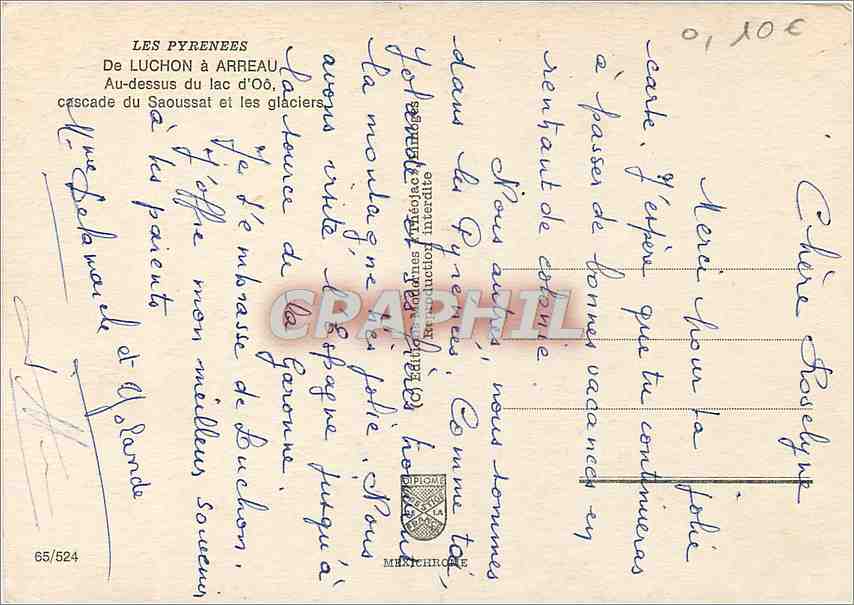 0,10€
LES PYRENEES
De LUCHON à ARREAU
Au-dessus du lac d'Oô,
cascade du Saoussat et les glaciers
Chère Roselyne
Merci pour ta jolie
carte. J'espère que tu continueras
à passer de bonnes vacances en
rentrant de colonie.
Nous autres, nous sommes
dans les Pyrénées. Comme toi,
Yolande et ses frères trouvent
la montagne très jolie. Nous
avons visité l'Espagne jusqu'à
la source de la Garonne.
Je t'embrasse de Luchon.
J'offre mon meilleur souvenir
à tes parents
Mme Delamarche et Yolande
(C) Editions Modernes Théojac - Limoges
Reproduction interdite
CPAPHIL
DIPLOME
PRESTIGE
DE LA
FRANCE
65/524
MEXICHROME